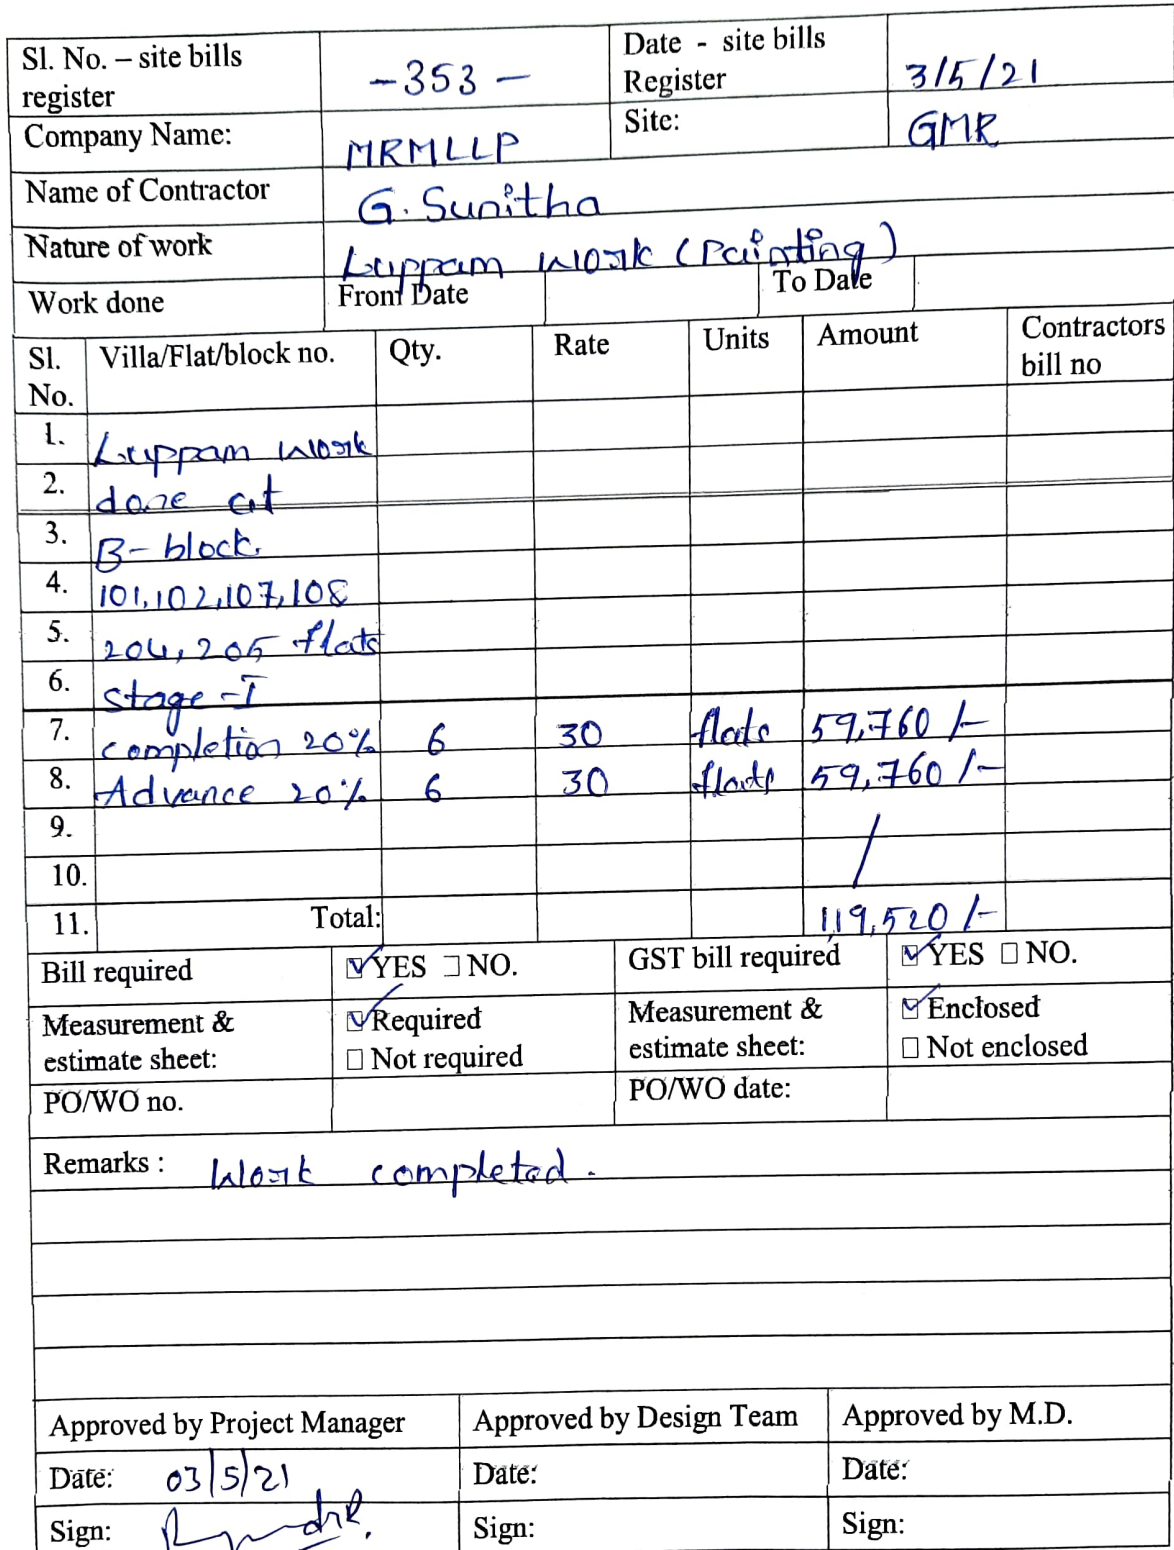 Sl. No. – site bills register -353- Date - site bills Register 3/5/21
Company Name: MRMLLP Site: GMR
Name of Contractor G. Sunitha
Nature of work Luppam work (Painting)
Work done From Date To Date
Sl. No. Villa/Flat/block no. Qty. Rate Units Amount Contractors bill no
1. Luppam work
2. done at
3. B-block.
4. 101,102,107,108
5. 204, 205 flats
6. stage -I
7. completion 20% 6 30 flats 59,760 /-
8. Advance 20% 6 30 flats 59,760 /-
9.
10.
11. Total: 1,19,520 /-
Bill required YES NO. GST bill required YES NO.
Measurement & estimate sheet: Required Measurement & estimate sheet: Enclosed
Not required Not enclosed
PO/WO no. PO/WO date:
Remarks : Work completed.
Approved by Project Manager Approved by Design Team Approved by M.D.
Date: 03/5/21 Date: Date:
Sign: Sign: Sign: